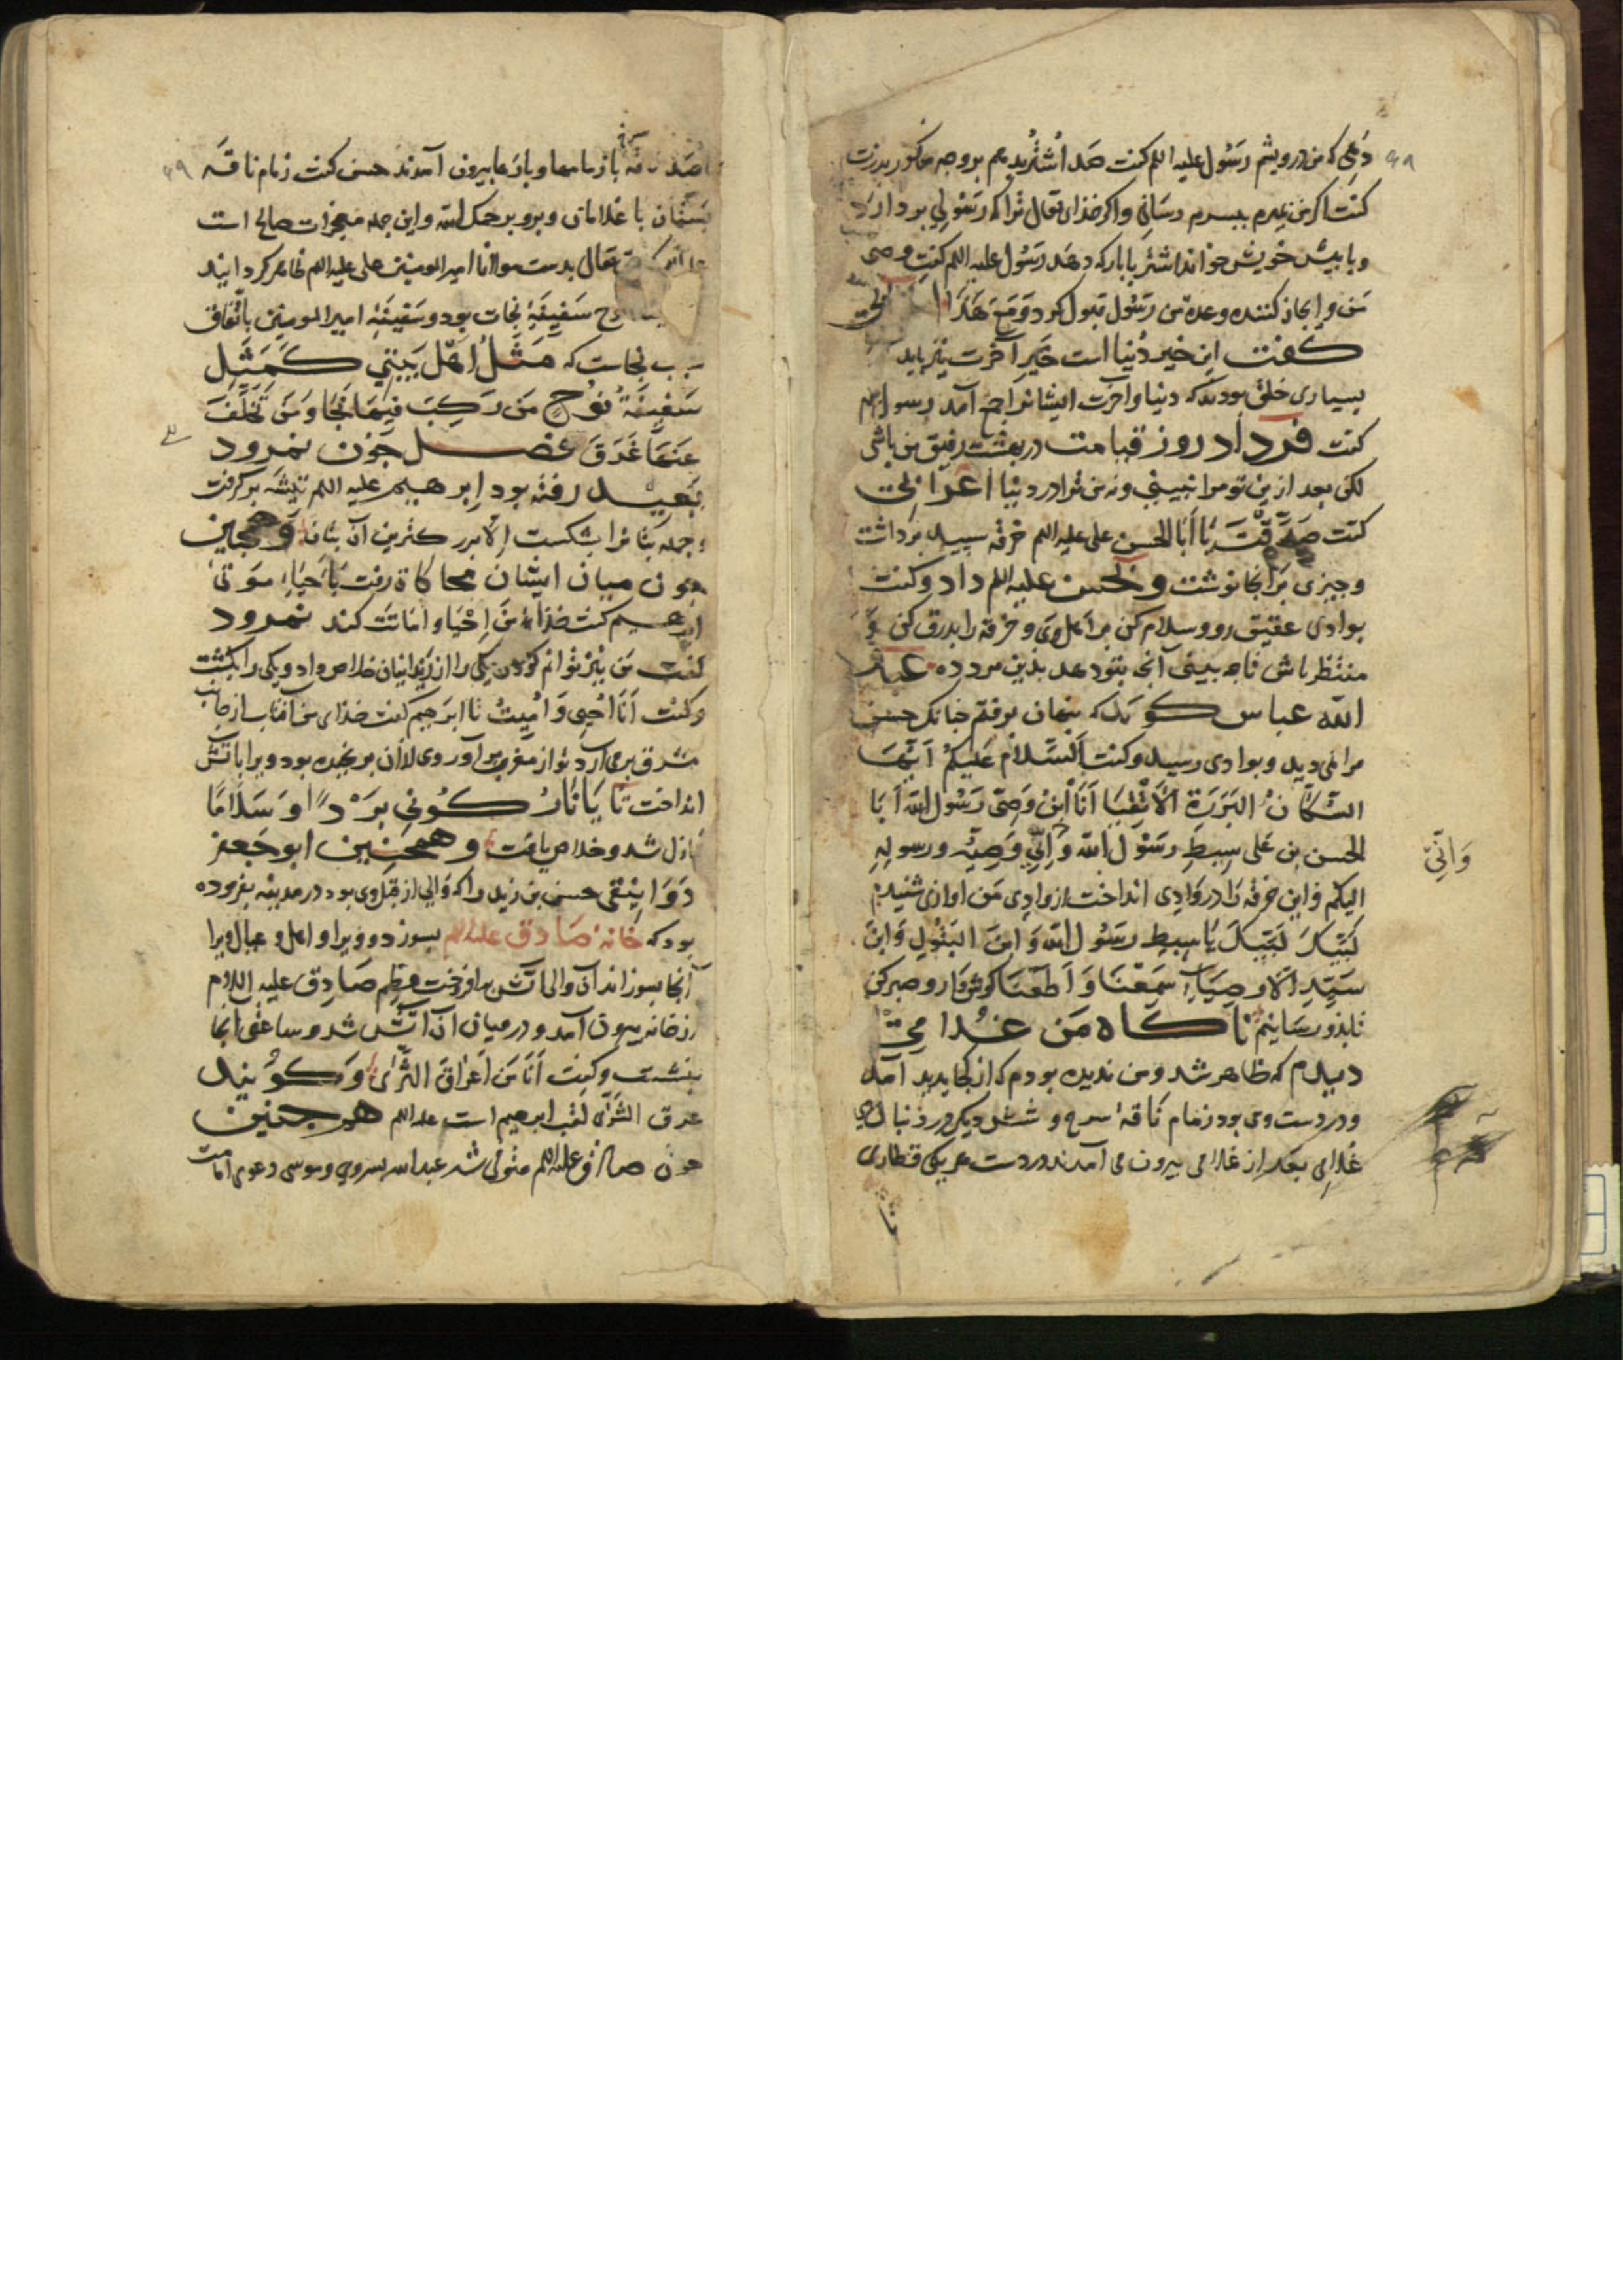 که من درویشم رسول علیه اللم کفت صد اشتر بدهم بر وجه مذکور
کفت اکر من بمیرم ببسرم رسانی واکر خذای تعالی ترا که رسولی بردارد
وبا بیش خویش خواند اشتر با بار که دهد رسول علیه اللم کفت وصی
من وانجاز کننده وعده من رسول قبول کرد
کفت این خیر دنیا است خیر آخرت نیز باید
بسیاری خلق بودند که دنیا وآخرت ایشانرا جمع آمد رسول
کفت فردا روز قیامت در بهشت رفیق من باشی
لکن بعد ازین تو مرا نبینی ونه من ترا در دنیا اعرابی
کفت صدقت یا ابا الحسن علی علیه اللم خرقه سپید برداشت
وجیزی بر آنجا نوشت وبحسن علیه اللم داد وکفت
بوادی عقیق رو وسلام کن بر اهل وی وخرقه را بدو
منتظر باش تا جه بینی آنجه بتو دهد بذین مرد ده عبد
الله عباس کوید که بنهان برفتم جنانک حسن
مرا نمی دید وبوادی رسید وکفت السلام علیکم ایها
السکان البررة الاتقیا انا ابن وصی رسول الله انا
الحسن بن علی سبط رسول الله وابن وصیه ورسوله
وانّی
الیکم واین خرقه را در وادی انداخت از وادی من اوازی شنیدم
لبیک لبیک یا سبط رسول الله وابن البتول وابن
سید الاوصیاء سمعنا واطعنا کوش دار وصبر کن
تا بذو رسانیم ناکاه من غلامی
دیدم که ظاهر شد ومن ندیده بودم که از کجا بدید آمد
ودر دست وی بود زمام ناقه سرخ وشش دیکر در دنبال
غلامی بعد از غلامی بیرون می آمدند در دست هر یکی قطاری
تا
صد ناقه با زمامها وبارها بیرون آمدند حسن کفت زمام ناقه
بستان با غلامان وبرو برحمک الله واین جمله معجزات صالح است
تعالی بدست مولانا امیر المومنین علی علیه اللم ظاهر کردانید
سفینه نجات بود وسفینه امیر المومنین باتفاق
سبب نجاتست که مثل اهل بیتی کمثل
سفینة نوح من رکب فیها نجا ومن تخلف
عنها غرق فصل جون نمرود
بعید رفته بود ابرهیم علیه اللم تیشه برکرفت
وجمله بتانرا بشکست الا بزرکترین آن بتان وهمجنین
جون میان ایشان محاکاة رفت باحیاء موتی
ابرهیم کفت خذاء من احیا واماتت کند نمرود
کفت من نیز توانم کردن یکی را از زندانیان خلاص داد ویکی را بکشت
وکفت انا احیی وامیت تا ابرهیم کفت خذای من آفتاب از جانب
مشرق برمی آرد تو از مغرب برآور وی لاان برنجیده بود ویرا باتش
انداخت تا یا نار کونی بردا وسلاما
نازل شد وخلاص یافت وهمجنین ابو جعفر
دوانیقی حسن بن زید را که والی از قبل وی بود در مدینه بفرموده
بود که خانه صادق علیه اللم بسوزد وویرا واهل وعیال ویرا
آنجا بسوزاند آن والی اتش برافروخت عظیم صادق علیه السلام
از خانه بیرون آمد ودر میان آن اتش شد وساعتی آنجا
بنشست وکفت انا من اعراق الثری وکویند
عرق الثری لقب ابرهیم است علیه اللم همجنین
جون صادق علیه اللم متوفی شد عبدالله بسر وی وموسی دعوی امامت